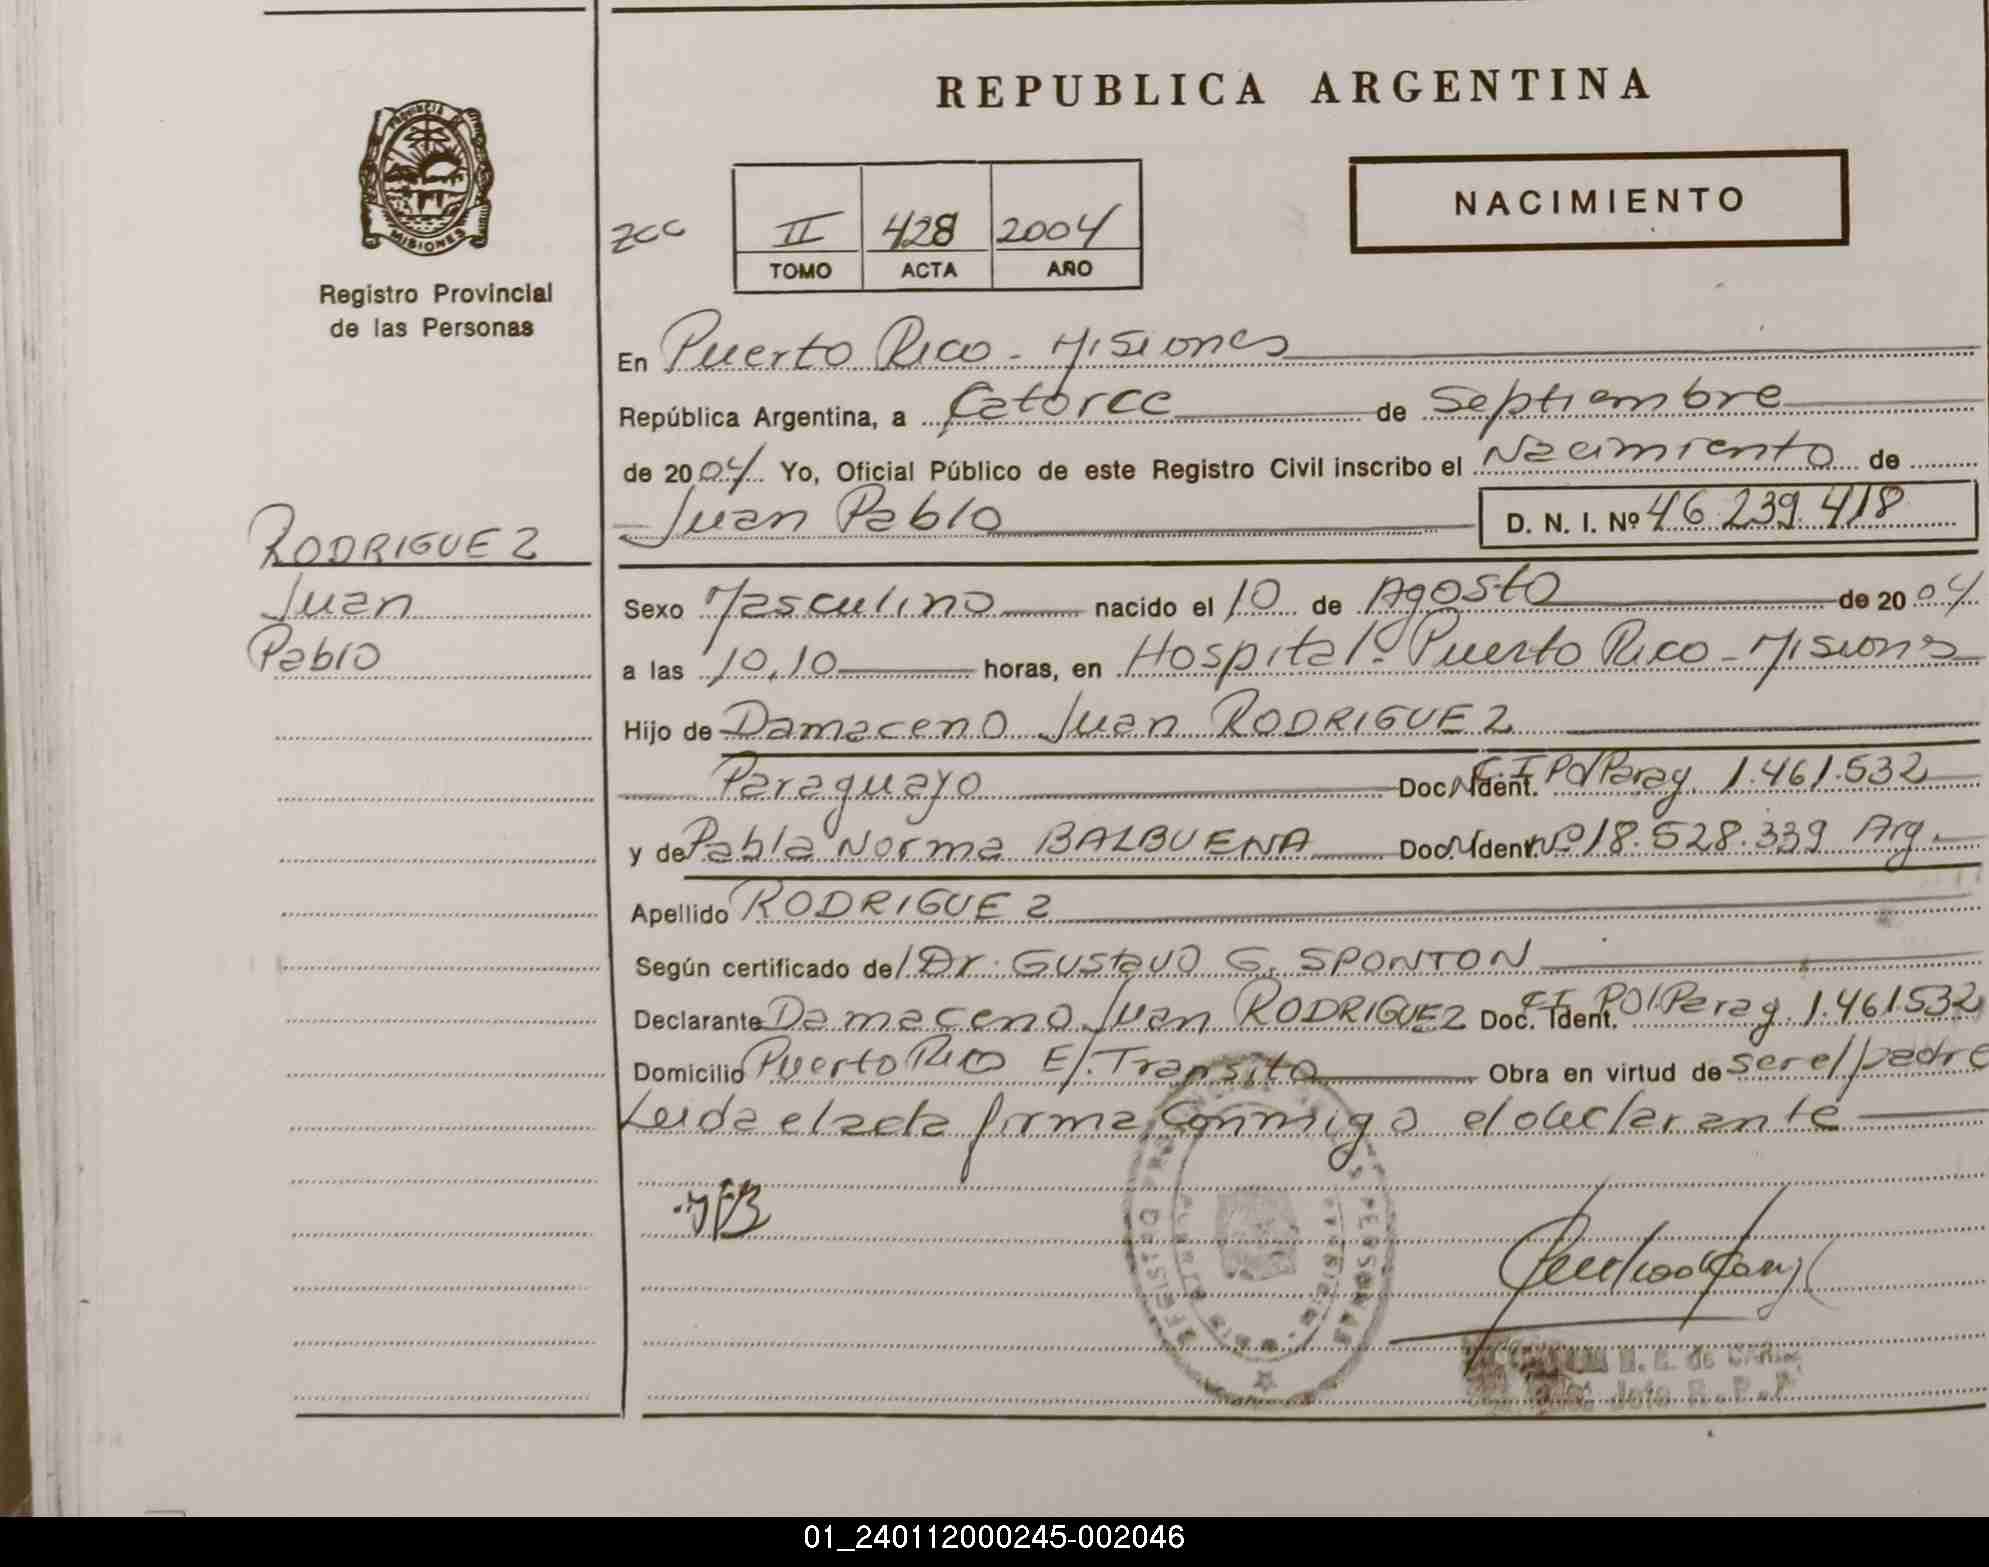 REPUBLICA ARGENTINA
PROVINCIA DE
MISIONES
Registro Provincial
de las Personas
NACIMIENTO
ZCC
II 428 2004
TOMO ACTA AÑO
En Puerto Rico - Misiones
República Argentina, a Catorce de Septiembre
de 2004 Yo, Oficial Público de este Registro Civil inscribo el Nacimiento de
Juan Pablo D. N. I. Nº 46.239.418
RODRIGUEZ
Juan
Pablo
Sexo Masculino nacido el 10 de Agosto de 2004
a las 10,10 horas, en Hospital. Puerto Rico - Misiones
Hijo de Damaceno Juan RODRIGUEZ
Paraguayo Doc. Ident. C.I Pol Parag. 1.461.532
y de Pabla Norma BALBUENA Doc. Ident. Nº 18.528.339 Arg.
Apellido RODRIGUEZ
Según certificado del Dr. Gustavo G. SPONTON
Declarante Damaceno Juan RODRIGUEZ Doc. Ident. C.I. POl Parag. 1.461532
Domicilio Puerto Rico E/. Transito Obra en virtud de ser el padre
Leida el acta firma conmigo el declarante
PERSONAS
01_240112000245-002046